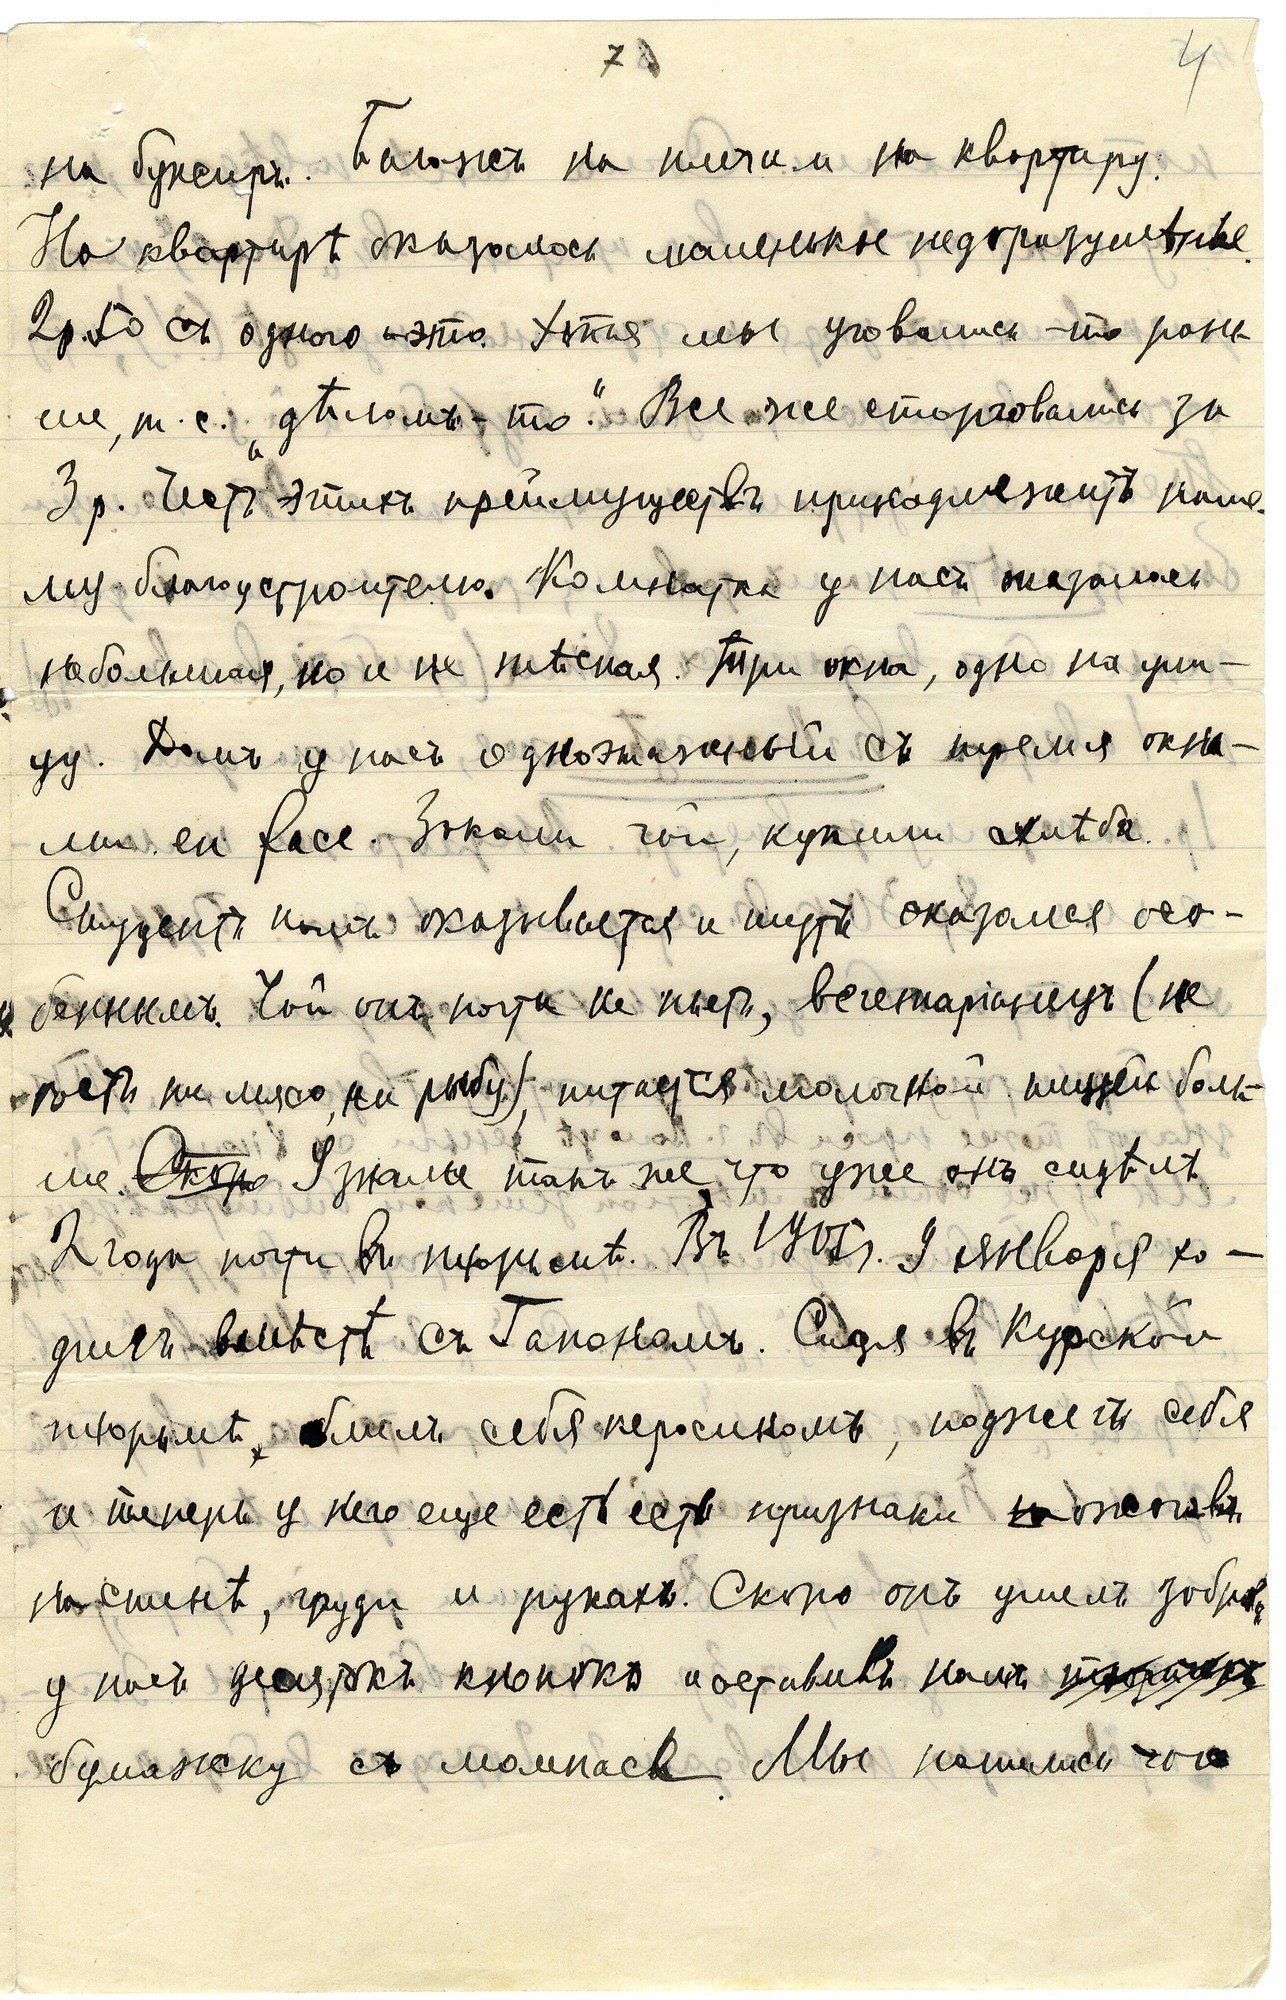 7
4
на буксиръ. Багажъ на плечи и на квартиру.
На квартирѣ оказалось маленькое недоразумѣнье.
2р.50 съ одного -это. Хотя мы уговались-то рань-
ше, т.е. „дѣломъ-то“. Все же сторговались за
3 р. Честь этихъ преимуществъ принадлежитъ наше-
му благоустроителю. Комнатка у насъ оказалась
небольшая, но и не тѣсная. Три окна, одно на ули-
цу. Домъ у насъ одноэтажный съ тремя окна-
ми en face. Взяли чай, купили хлѣба.
Студентъ нашъ оказывается и тутъ оказался осо-
беннымъ. Чай онъ почти не пьетъ, вегетаріанецъ (не
ѣстъ ни мясо, ни рыбу), питается молочной пищей боль-
ше. Скоро Узнали такъ же что уже онъ сидѣлъ
2 года почти въ тюрьмѣ. Въ 1905г. 9 января хо-
дилъ вмѣстѣ съ Гапономъ. Сидя въ Курской
тюрьмѣ, облилъ себя керосиномъ, поджегъ себя
и теперь у него еще есть есть признаки ожоговъ
на спинѣ, груди и рукахъ. Скоро онъ ушелъ забравъ
у насъ десятокъ кнопокъ и оставивъ намъ
бумажку съ монпасье. Мы напились чаю